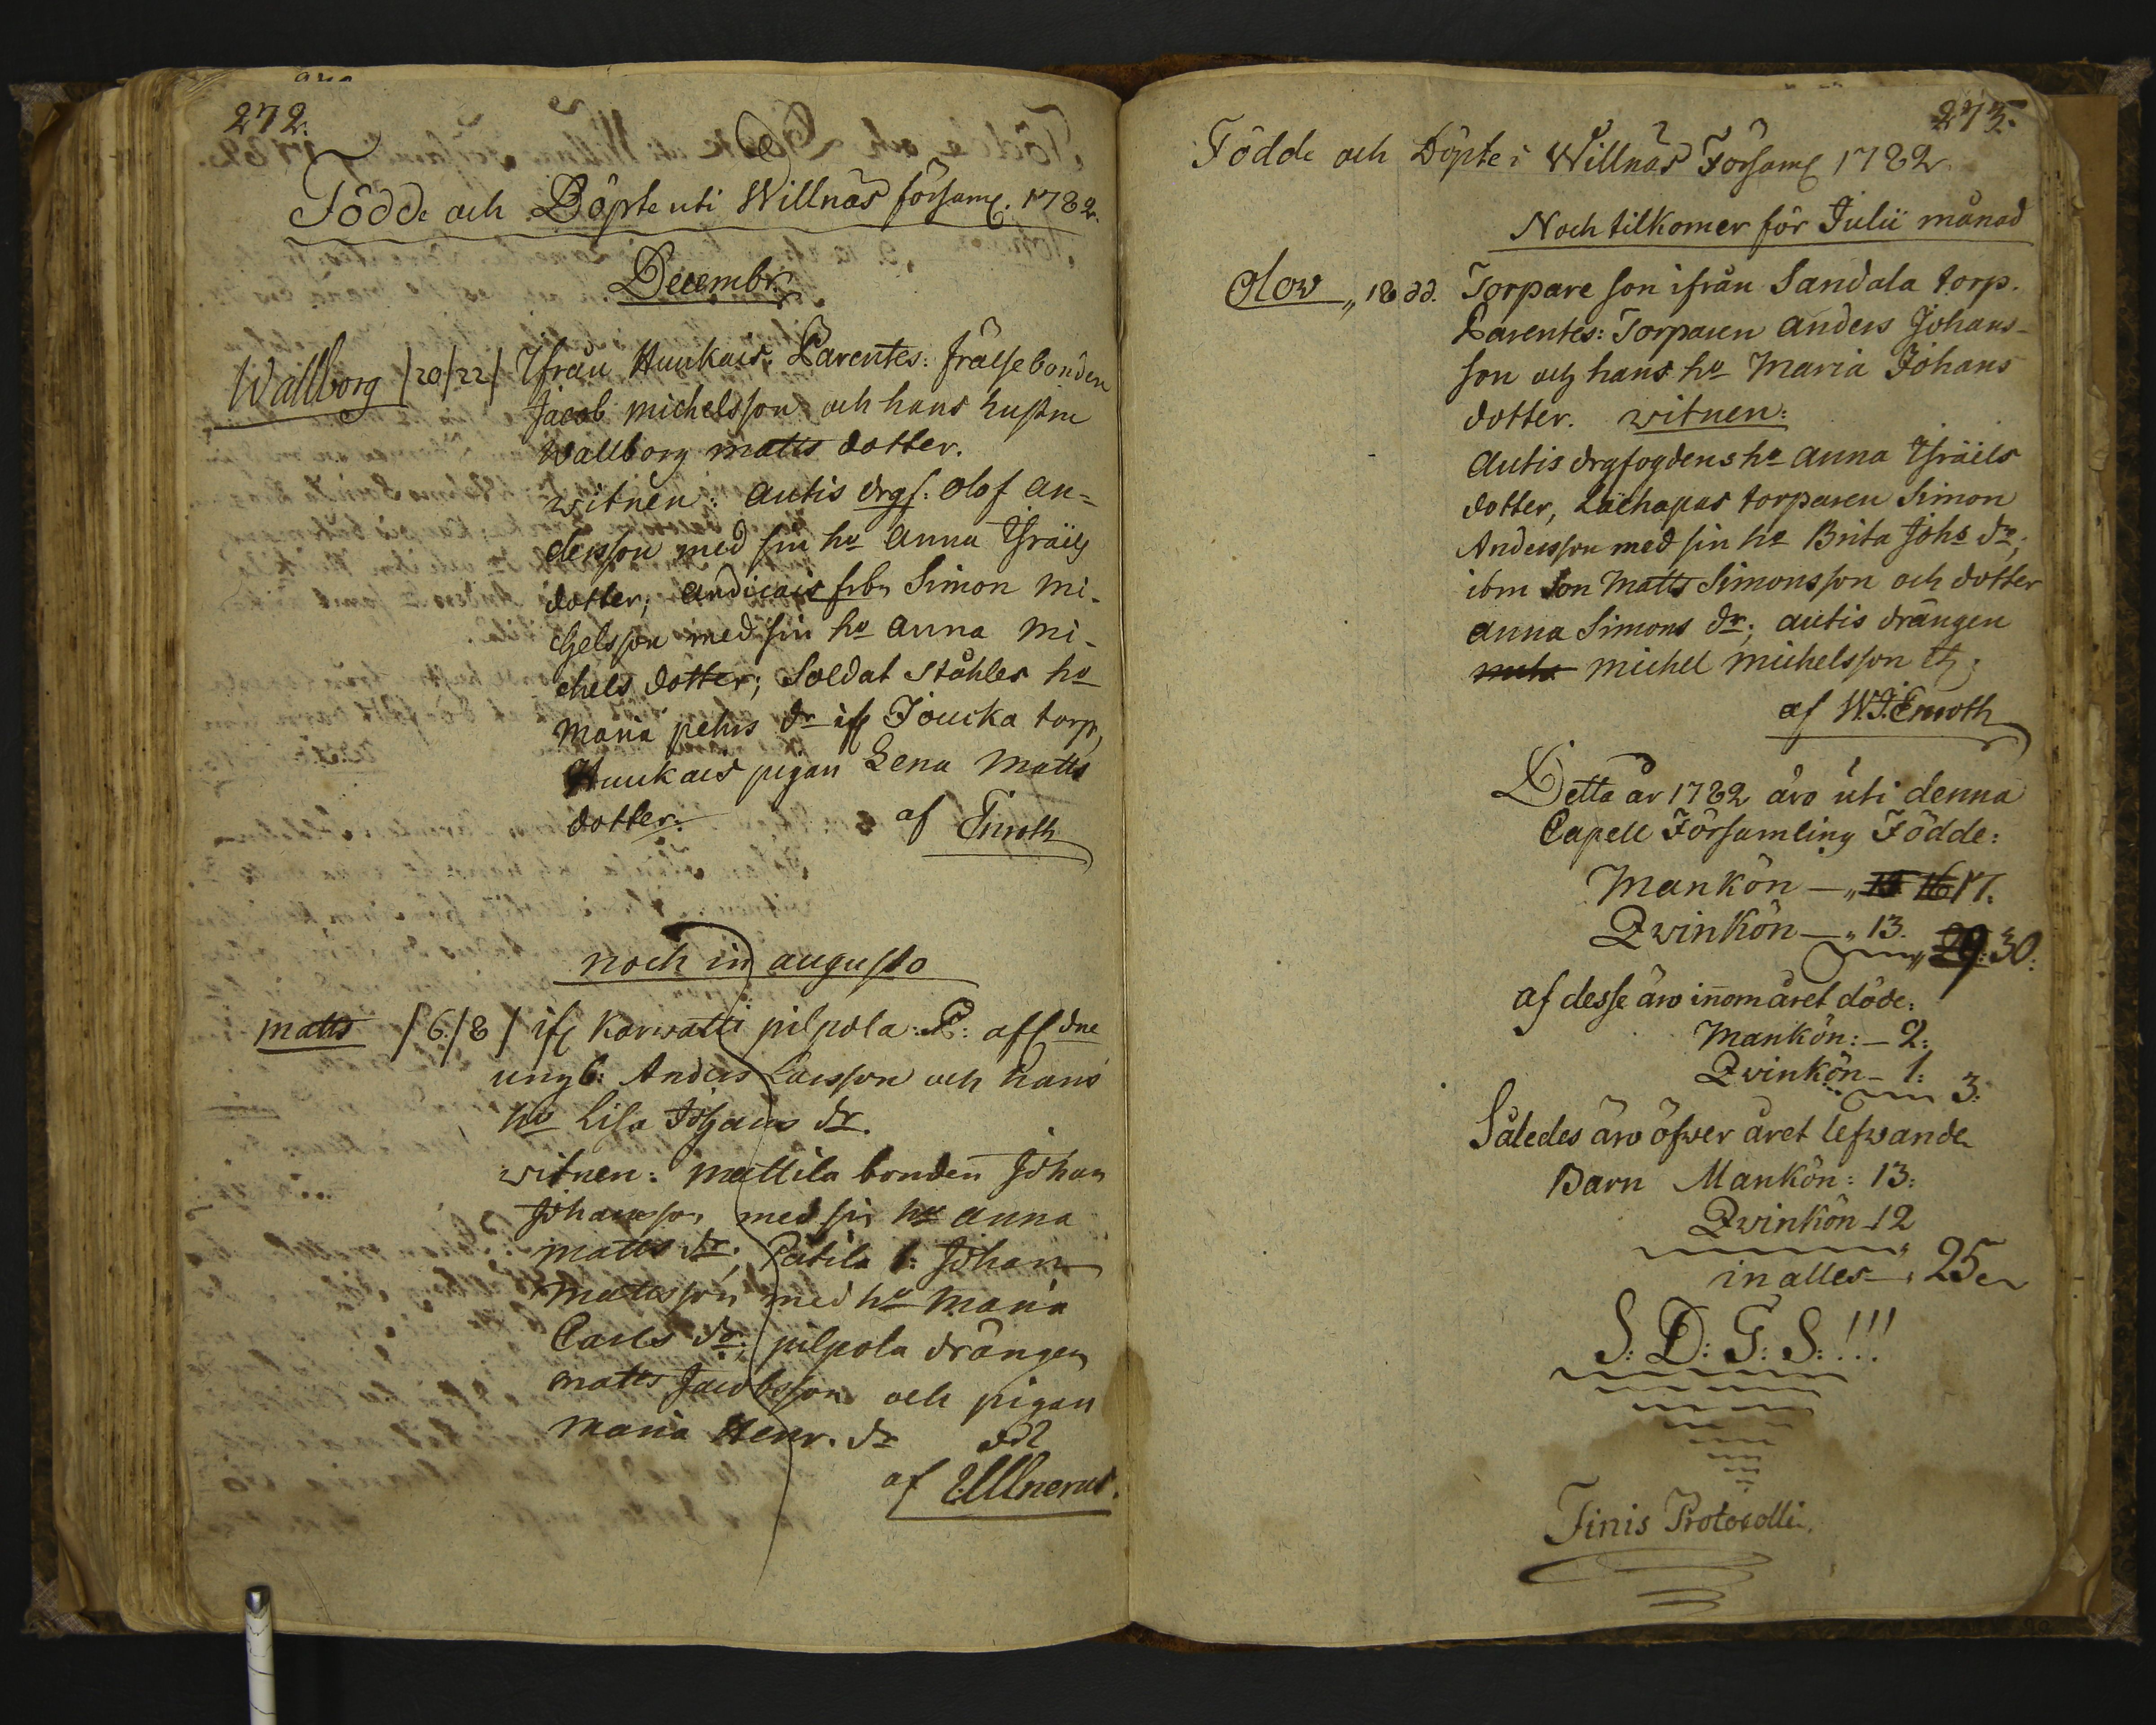 272.
Födde och Döpte uti Willnäs församl. 1782.
Decembr.
Wallborg /20/22/ Ifrån Hunkais. Parentes: frälsebonden
Jacob Michelsson och hans hustru
Wallborg Matts dotter.
witnen: Autis drgf: Olof An=
dersson med sin ho Anna Israels
dotter; Andicais frb. Simon Mi-
chelsson med sin ho Anna Mi-
chels dotter; Soldat Ståhles ho
Maria Pehrs dr ifr Joucka torp,
Hunkais pigan Lena Matts
dotter. af Enroth
noch in augusto
Matts /6/8/ ifr Karwatti pilpola. P: aff dne
ungb: Anders Larsson och hans
ho Lisa Johans dr.
witnen: Mattila bonden Johan
Johansson med sin ho Anna
Matts dr; Patila b: Johan
Mattsson med ho Maria
Carls dr; pilpola drängen
Matts Jacobsson och pigan
Maria Henr. dr
af Ullnerus.
273.
Födde och Döpte i Willnäs Församl 1782
Noch tilkomer för Julii månad
Olow " 18 dd. Torpare son ifrån Sandala torp.
Parentes: Torparen Anders Johans-
son och hans ho Maria Johans
dotter. witnen:
Autis drgfogdens ho Anna Israels
dotter, torparen Simon
Andersson med sin ho Brita Johs dr;
ibm son Matts Simonsson och dotter
Anna Simons dr; Autis drängen
Michel Michelsson
af W. J. Enroth
Detta år 1782 äro uti denna
Capell Församling Födde:
Mankön — " 15 16 17.
Qvinkön — " 13.
29: 30:
af desse äro inom året döde:
Mankön: — 2:
Qvinkön — 1:
3:
Således äro öfwer året lefwande
Barn Mankön: 13:
Qvinkön 12
in alles — 25
S: D: G: S: !!!
Finis Protocolli.